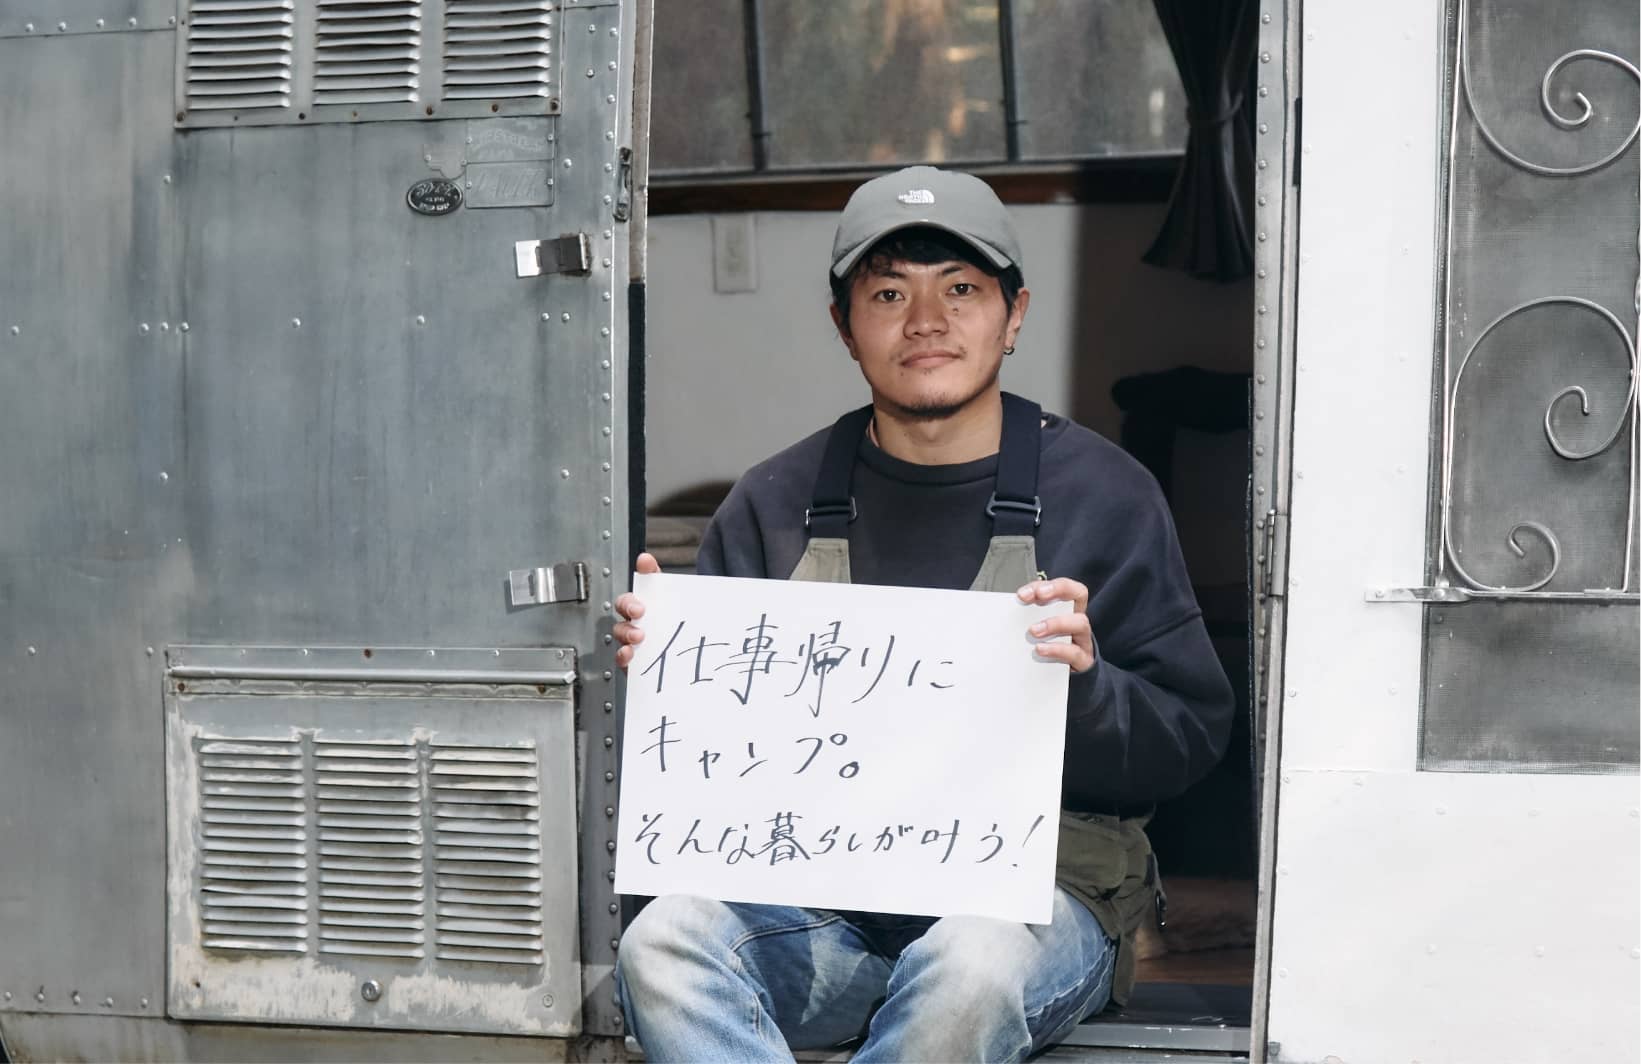 THE
NORTH
FACE
仕事帰りに
キャンプ。
そんな暮らしが叶う!